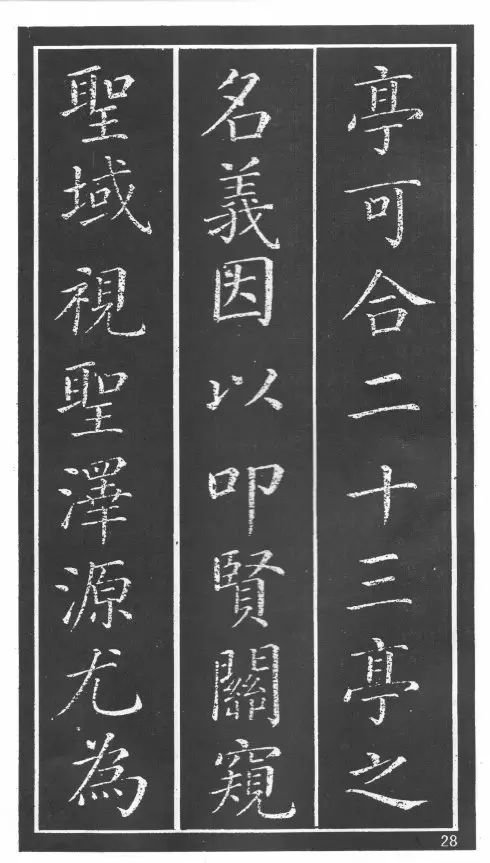 亭可合二十三亭之
名義因以叩賢關窺
聖域視聖澤源尤為
28